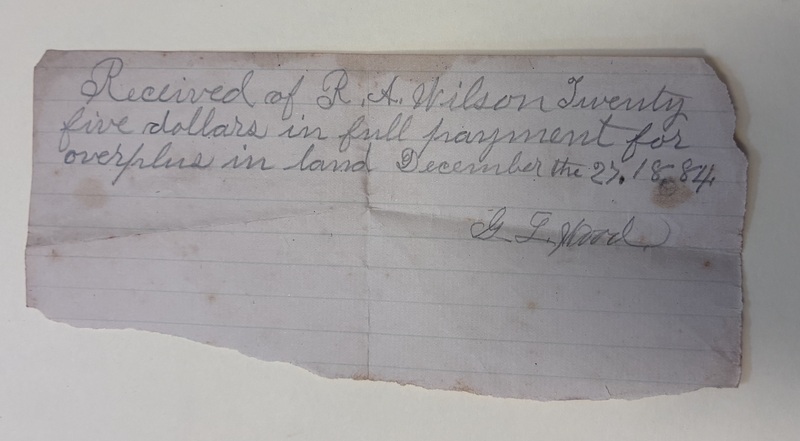 Received of R. A. Wilson Twenty
five dollars in full payment for
overplus in land December the 27. 1884
G. L. Wood